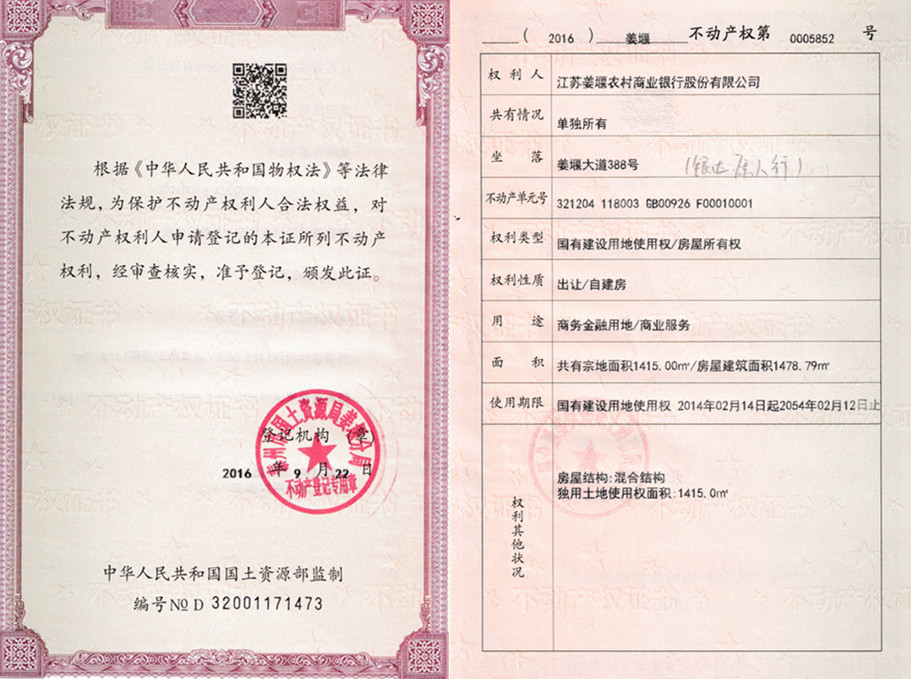 根据《中华人民共和国物权法》等法律
法规，为保护不动产权利人合法权益，对
不动产权利人申请登记的本证所列不动产
权利，经审查核实，准予登记，颁发此证。
国土资源局姜堰分局
登记机构（章）
2016 年 9 月 22 日
不动产登记专用章
中华人民共和国国土资源部监制
编号 № D 32001171473
( 2016 ) 姜堰 不动产权第 0005852 号
权利人 江苏姜堰农村商业银行股份有限公司
共有情况 单独所有
坐落 姜堰大道388号
不动产单元号 321204 118003 GB00926 F00010001
权利类型 国有建设用地使用权/房屋所有权
权利性质 出让/自建房
用途 商务金融用地/商业服务
面积 共有宗地面积1415.00㎡/房屋建筑面积1478.79㎡
使用期限 国有建设用地使用权 2014年02月14日起2054年02月12日止
权利其他状况
房屋结构:混合结构
独用土地使用权面积:1415.0㎡